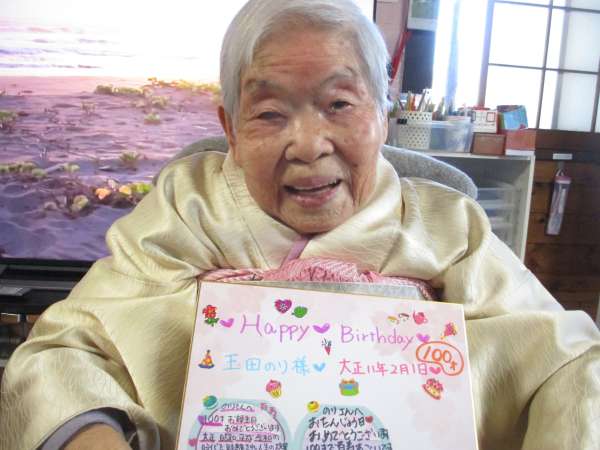 Happy Birthday
100才
玉田のり様 大正11年2月1日
のりさんへ
100才お誕生日
おめでとうございます
大正 昭和 平成 令和の
のりさんへ
おたんじょう日
おめでとうございます